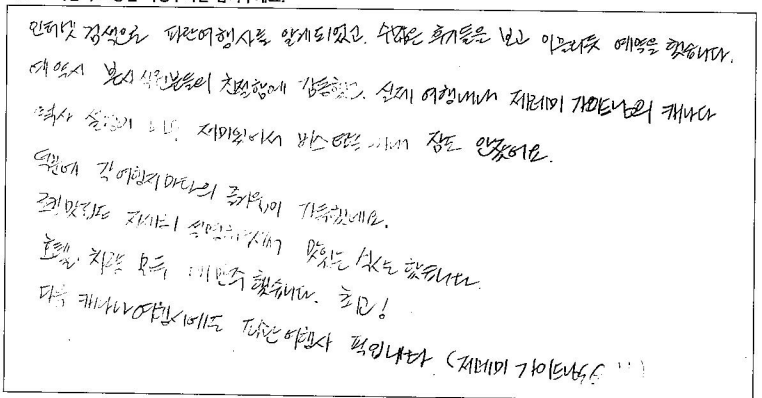 인터넷 검색으로 파란여행사를 알게되었고. 수많은 후기들을 보고 이끌리듯 예약을 했습니다.
예약시 본사 직원분들의 친절함에 감동했고. 실제 여행내내 제레미 가이드님의 캐나다
역사 설명이 너무 재미있어서 버스 안에서 잠도 안잤어요.
덕분에 각 여행지마다의 즐거움이 가득했네요.
맛집도 자세히 설명해주셔서 맛있는 식사를 했습니다.
호텔. 차량 모두 대만족 했습니다. 최고!
다음 캐나다여행시에도 파란여행사 픽입니다. (제레미 가이드님